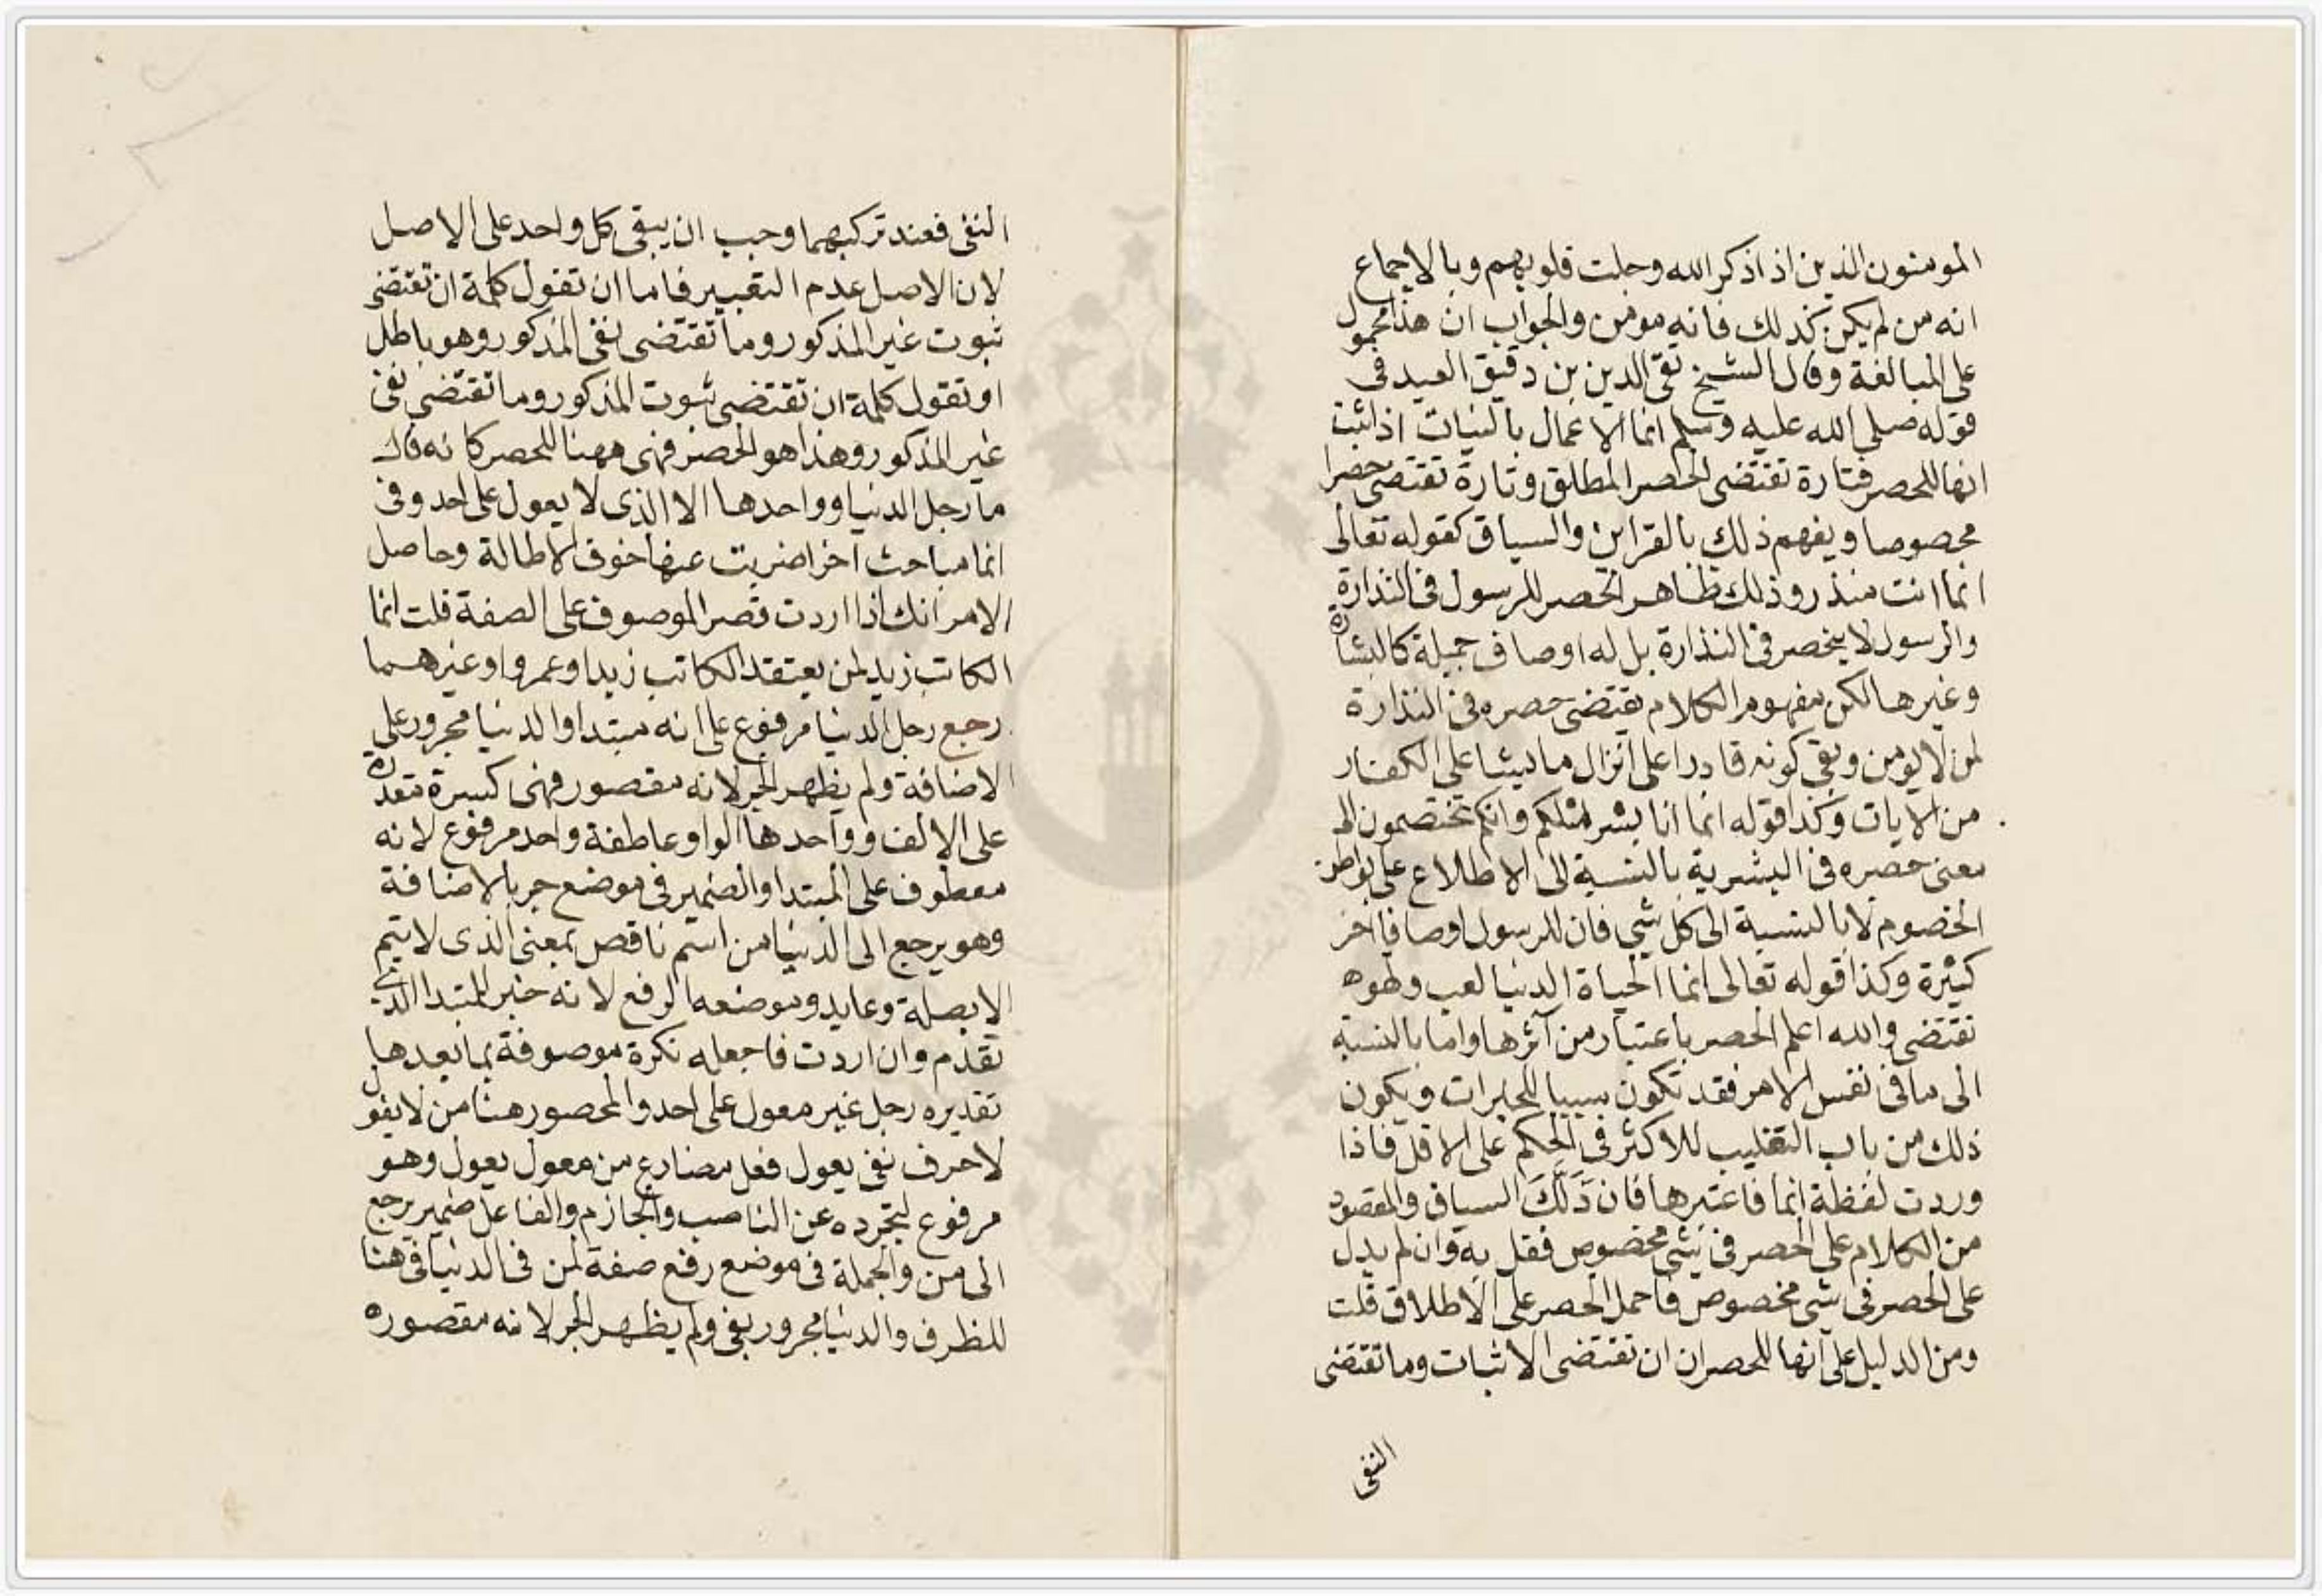 المومنون الذين اذا ذكر الله وجلت قلوبهم وبالاجماع
انه من لم يكن كذلك فانه مومن والجواب ان هذا محمول
على المبالغة وقال الشيخ تقى الدين بن دقيق العيد فى
قوله صلى الله عليه وسلم انما الاعمال بالنيات اذا ثبت
انها للحصر فتارة تقتضى الحصر المطلق وتارة تقتضى حصرا
مخصوصا ويفهم ذلك بالقراين والسياق كقوله تعالى
انما انت منذر وذلك ظاهر الحصر للرسول فى النذارة
والرسول لا ينحصر فى النذارة بل له اوصاف جميلة كالبشارة
وغيرها لكن مفهوم الكلام يقتضى حصره فى النذارة
لمن لا يومن ونفى كونه قادرا على انزال ما يشا على الكفار
من الايات وكذا قوله انما انا بشر مثلكم وانكم تختصمون الى
معنى حصره فى البشرية بالنسبة الى الاطلاع على بواطن
الخصوم لا بالنسبة الى كل شى فان للرسول اوصافا اخر
كثيرة وكذا قوله تعالى انما الحياة الدنيا لعب ولهو
تقتضى والله اعلم الحصر باعتبار من آثرها واما بالنسبة
الى ما فى نفس الامر فقد تكون سببا للخيرات ويكون
ذلك من باب التغليب للاكثر فى الحكم على الاقل فاذا
وردت لفظة انما فاعتبرها فان دَلَّكَ السياق والمقصود
من الكلام على الحصر فى شى مخصوص فقل به وان لم يدل
على الحصر فى شى مخصوص فاحمل الحصر على الاطلاق قلت
ومن الدليل على انها للحصر ان ان تقتضى الاثبات وما تقتضى
النفى
النفى فعند تركبهما وجب ان يبقى كل واحد على الاصل
لان الاصل عدم التغيير فاما ان تقول كلمة ان تقتضى
ثبوت غير المذكور وما تقتضى نفى المذكور وهو باطل
او تقول كلمة ان تقتضى ثبوت المذكور وما تقتضى نفى
غير المذكور وهذا هو الحصر فهى ههنا للحصر كانه قال
ما رجل الدنيا وواحدها الا الذى لا يعول على احد وفى
انما مباحث اخر اضربت عنها خوف الاطالة وحاصل
الامر انك اذا اردت قصر الموصوف على الصفة قلت انما
الكاتب زيد لمن يعتقد الكاتب زيدا وعمروا وغيرهما
رجع رجل الدنيا مرفوع على انه مبتدا والدنيا مجرور على
الاضافة ولم يظهر الجر لانه مقصور فهى كسرة مقدرة
على الالف وواحدها الواو عاطفة واحد مرفوع لانه
معطوف على المبتدا والضمير فى موضع جر بالاضافة
وهو يرجع الى الدنيا من اسم ناقص بمعنى الذى لا يتم
الا بصلة وعايد وموضعه الرفع لانه خبر المبتدا الذى
تقدم وان اردت فاجعله نكرة موصوفة بما بعدها
تقديره رجل غير معول على احد والمحصور هنا من لا يعول
لا حرف نفى يعول فعل مضارع من معول يعول وهو
مرفوع لتجرده عن الناصب والجازم والفاعل ضمير يرجع
الى من والجملة فى موضع رفع صفة لمن فى الدنيا فى هنا
للظرف والدنيا مجرور بفى ولم يظهر الجر لانه مقصور